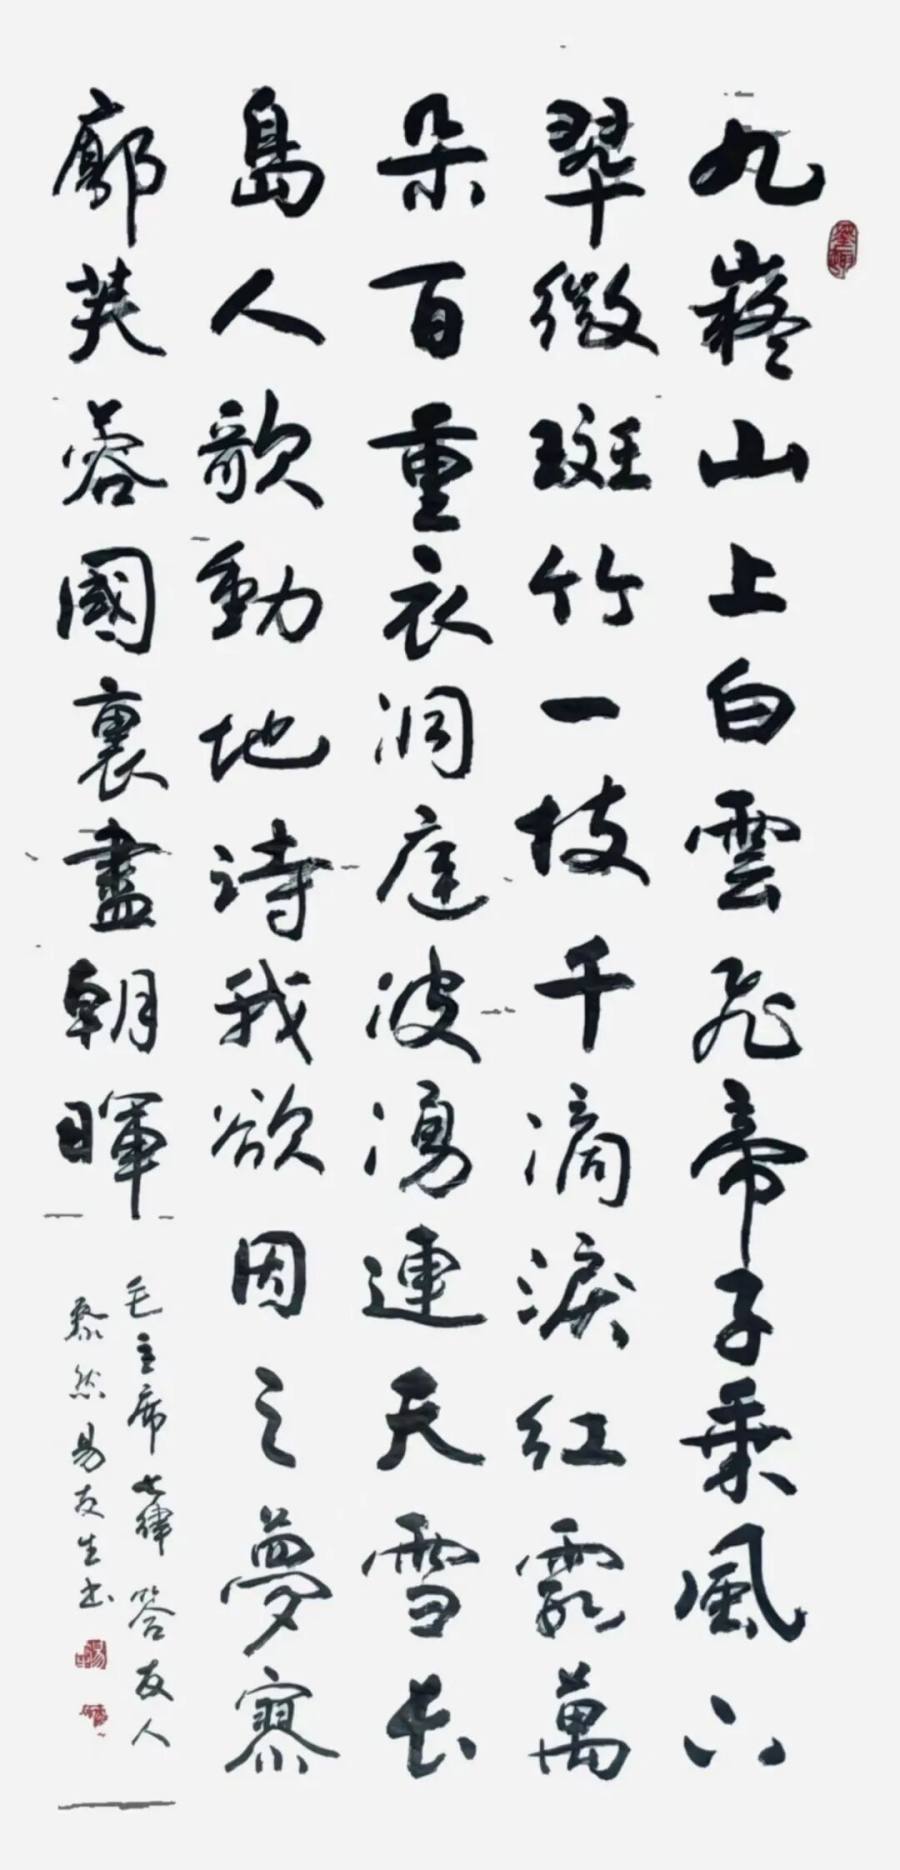 九嶷山上白雲飛帝子乘風下
翠微斑竹一枝千滴淚红霞萬
朵百重衣洞庭波湧連天雪長
島人歌動地詩我欲因之夢寥
廓芙蓉國裏盡朝暉
毛主席七律答友人
易友生书